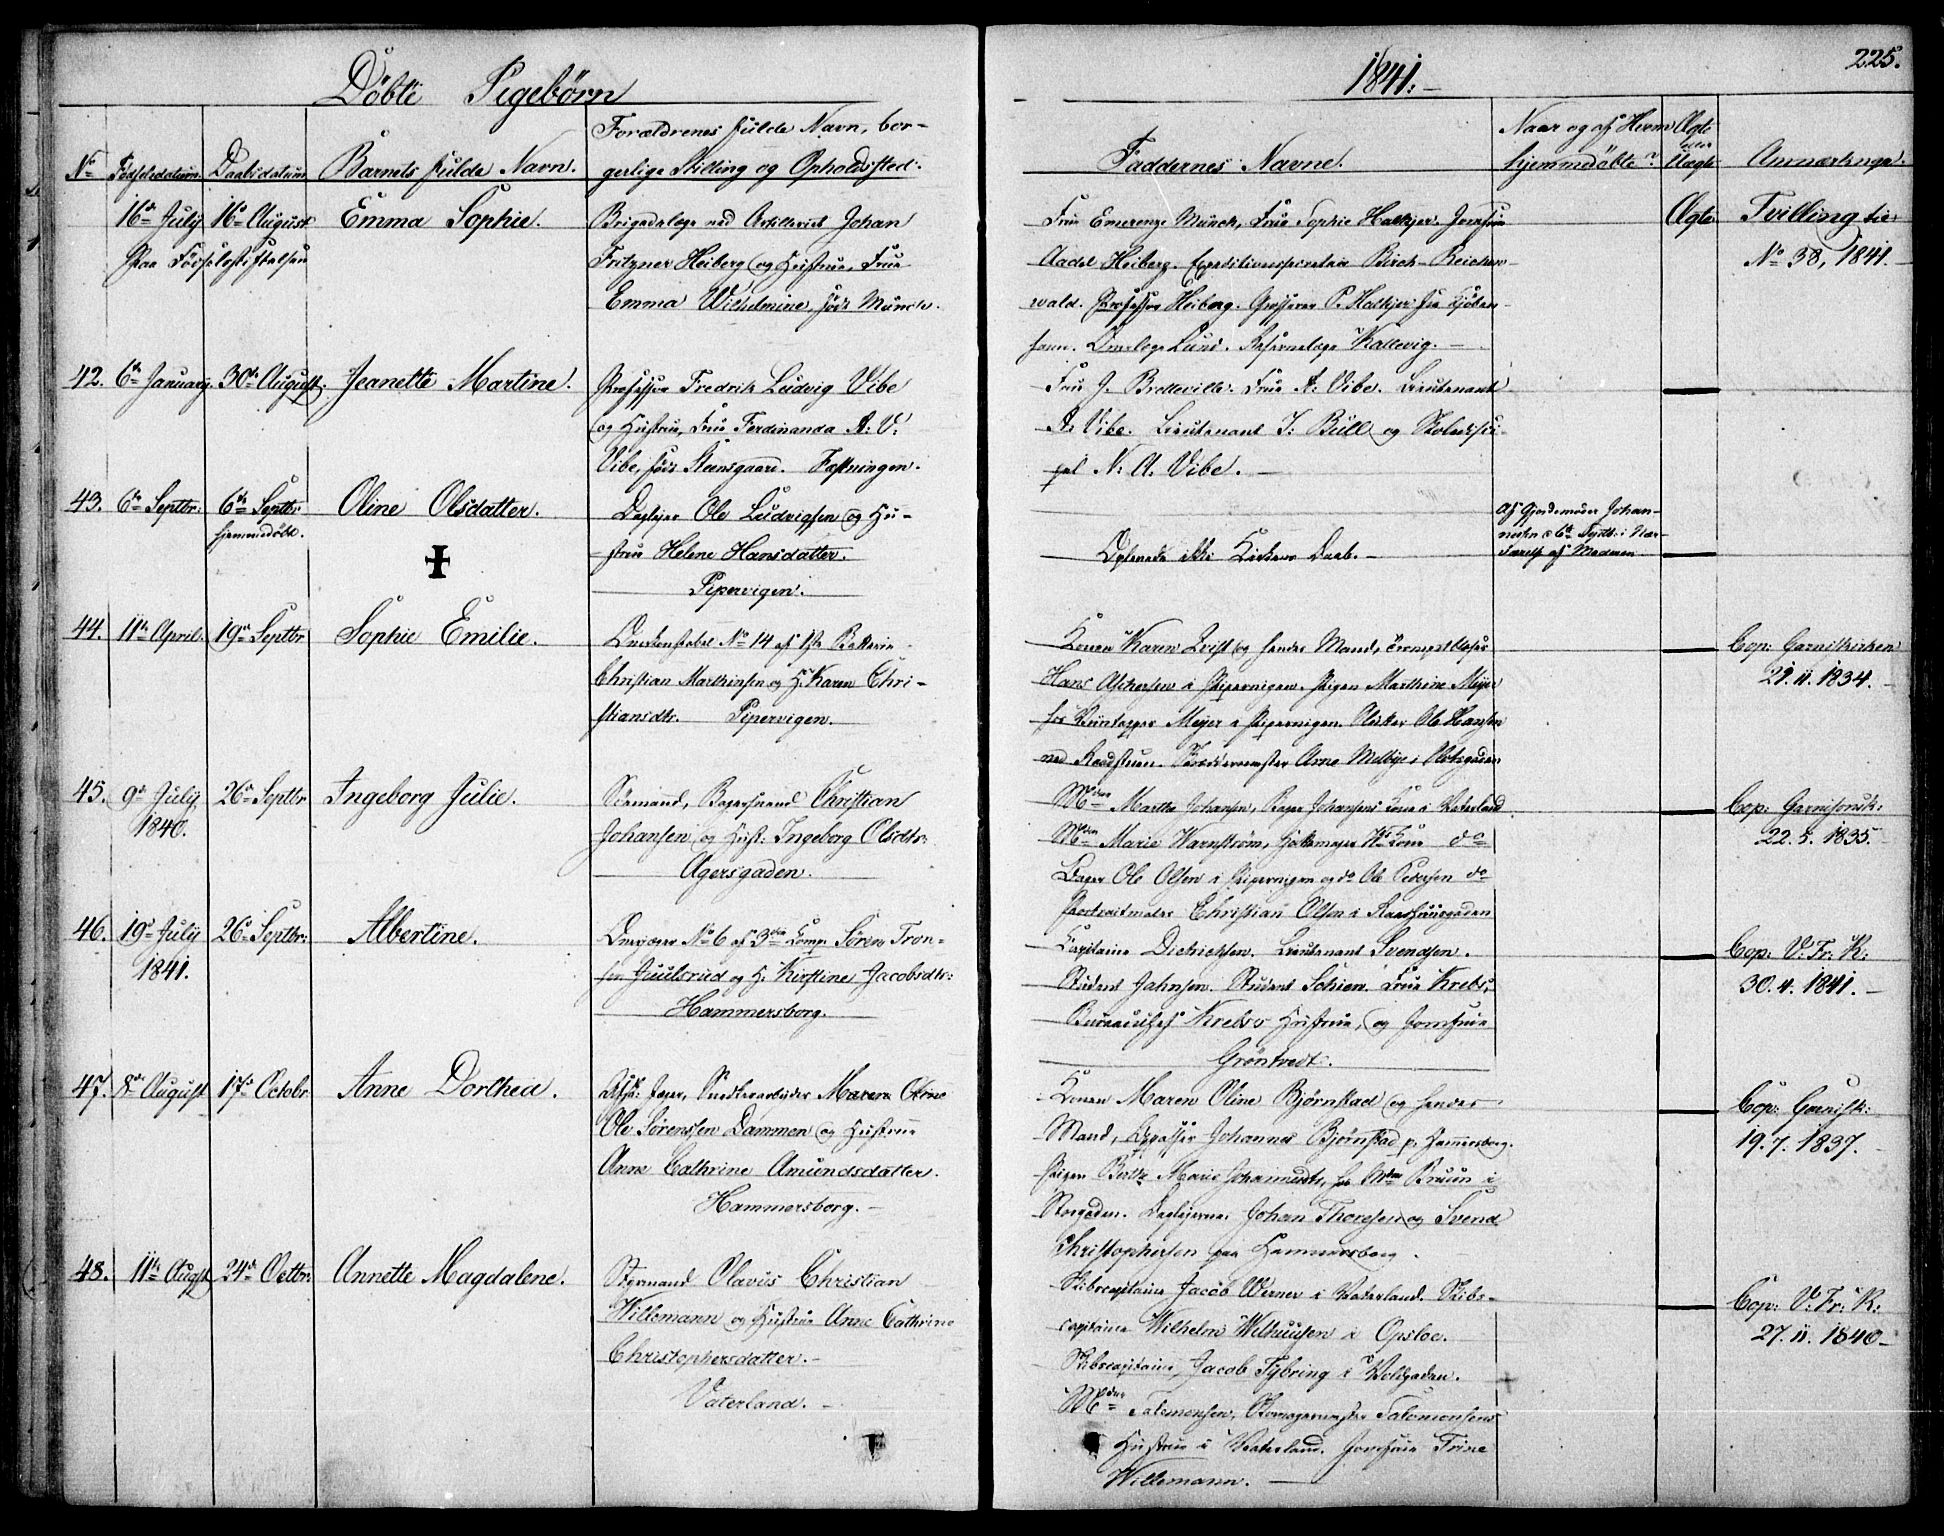 Döbte Pigebørn
1841.
225.
No Fødselsdatum. Daabsdatum Barnets fulde Navn.
Forældrenes fulde Navn, bor-
gerlige Stilling og Opholdssted.
Faddernes Navne.
Naar og af Hvem
hjemmedöbt?
Ægte
eller
Uægte
Anmærkninger.
16de July 16de August Emma Sophie.
paa Födselsstiftelsen
Brigadelæge ved Artilleriet Johan
Fritzner Heiberg og Hustrue, Frue
Emma Wilhelmine, født Munch.
Frue Emerenze Munch, Frue Sophie Halkjer. Jomfrue
Aadel Heiberg. Expeditionssecretair Birch-Reichen-
wald. Professor Heiberg. Grosserer P. Halkjer fra Kjøben-
havn. Lund. Kallevig.
Ægte
Tvilling til
No 38, 1841.
42. 6te January. 30te August. Jeanette Martine.
Professor Fredrik Ludvig Vibe
og Hustrue, Frue Ferdinanda A: V:
Vibe, født Steensgaard. Fæstningen.
Frue J. Bretteville. Frue A. Vibe. Lieutenant
A. Vibe. Lieutenant J. Bull og Skoledisci-
pel N. A. Vibe.
43. 6te Septbr: 6te Septbr: Oline Olsdatter.
hjemmedöbt.
Ole Ludvigsen og Hu-
strue Helene Hansdatter.
Pipervigen.
ikke Kirkens Daab.
Af Gjordemoder Johan-
nesen 6te Septbr: i Nær-
værelse af Moderen
44. 11te April. 19de Septbr Sophie Emilie.
Overkonstabel No 14 af 1ste Batterie
Christian Marthinsen og H: Karen Chri-
stiansdtr. Pipervigen.
Konen Karen Qvist og hendes Mand, Trompetblæser
Hans Aschersen i Pipervigen. Pigen Marthine Meyer
hos Meyer i Pipervigen. Ole Hansen
ved Raadstuen. Arne Melbye i
Cop: Garniskirken
21. 11. 1834.
45. 9de July 26de Septbr Ingeborg Julie.
1840.
Sömand, Christian
Johansen og Hust: Ingeborg Olsdtr:
Agersgaden.
Mdm Marthe Johansen, Johansens Kone i Vaterland
Mdm Marie Warnström, Kone do
Ole Olsen i Pipervigen og do Ole Pedersen do
Portraitmaler Christian Olsen i Raadhuusgaden
Cop: Garnisonsk:
22. 5. 1835.
46. 19de July 26de Septbr: Albertine.
1841.
No 6 af 3die Komp: Sören Tron-
sen Juulsrud og H. Kirstine Jacobsdtr:
Hammersborg.
Capitaine Dietrichsen. Lieutenant Svendsen.
Student Jahnsen. Student Schien. Frue Krebs,
Bureauchef Krebs's Hustrue, og Jomfrue
Gröntvedt.
Cop: V: Fr: K:
30. 4. 1841.
47. 8de August 17de Octobr: Anne Dorthea.
Afsk: Jæger, Snedkerarbeider
Ole Sörenssen Dammen og Hustrue
Anne Cathrine Amundsdatter.
Hammersborg.
Konen Maren Oline Bjørnstad og hendes
Mand, Johannes Bjørnstad p: Hammersborg.
Pigen Berthe Marie Johannesdtr, hos Mdm Bruun i
Storgaden. Johan Thoresen og Svend
Christophersen paa Hammersborg.
Cop: Garnisk:
19. 7. 1837.
48. 11te Augst 24de Octbr: Annette Magdalene.
Styrmand Olavus Christian
Willemann og Hustrue Anne Cathrine
Christophersdatter.
Vaterland.
Skibscapitaine Jacob Werner i Vaterland. Skibs-
capitaine Wilhelm Wilhuusen i Opsloe.
Skibscapitaine, Jacob Tybring i Voldgaden.
Mdm Salomonsen, Salomonsens
Hustrue i Vaterland. Jomfrue Trine
Willemann.
Cop: V: Fr: K:
27. 11. 1840.